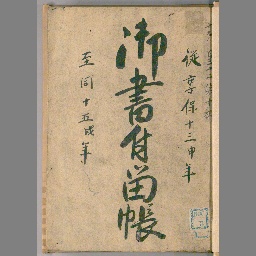 従享保十三申年
御書付留帳
至同十五戌年